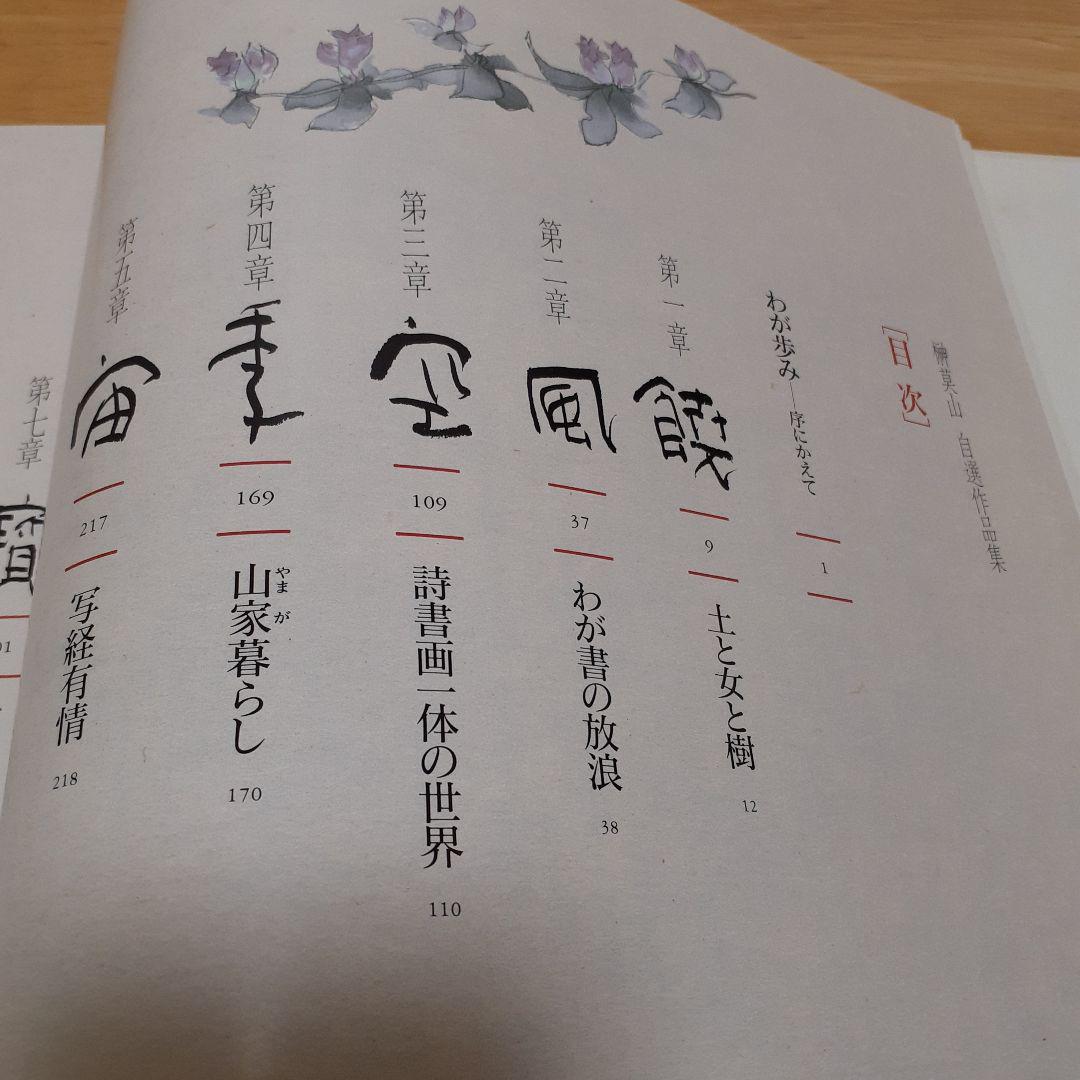 榊莫山 自選作品集
[目次]
わが歩み──序にかえて
1
第一章
9
土と女と樹
12
第二章 風
37
わが書の放浪
38
第三章 空
109
詩書画一体の世界
110
第四章 季
169
山家暮らし
やまが
170
第五章 宙
217
写経有情
218
第七章 寶
01